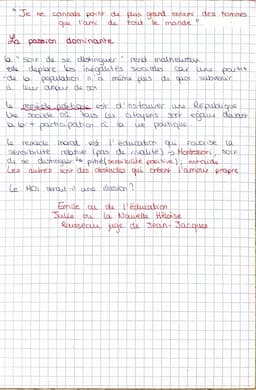 "Je ne connais point de plus grand ennemi des hommes
que l'ami de tout le monde"
La passion dominante
la "soif de se distinguer" rend malheureux
elle déplore les inégalités sociales car une partie
de la population n'a même pas de quoi subvenir
à leur amour de soi
le remède politique est d'instaurer une République
une société où tous les citoyens sont égaux devant
la loi + participation à la vie politique.
le remède moral est l'éducation qui favorise la
sensibilité relative (pas de rivalité) → Montessori, soif
de se distinguer → pitié (sensibilité positive), entraide
Les autres sont des obstacles qui créent l'amour propre
Le MOI serait-il une illusion ?
Emile ou de l'éducation
Julie ou la Nouvelle Héloïse
Rousseau juge de Jean-Jacques